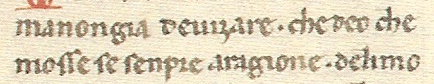 manongia deuizare · che deo che
mosse se senpre aragione · delimo